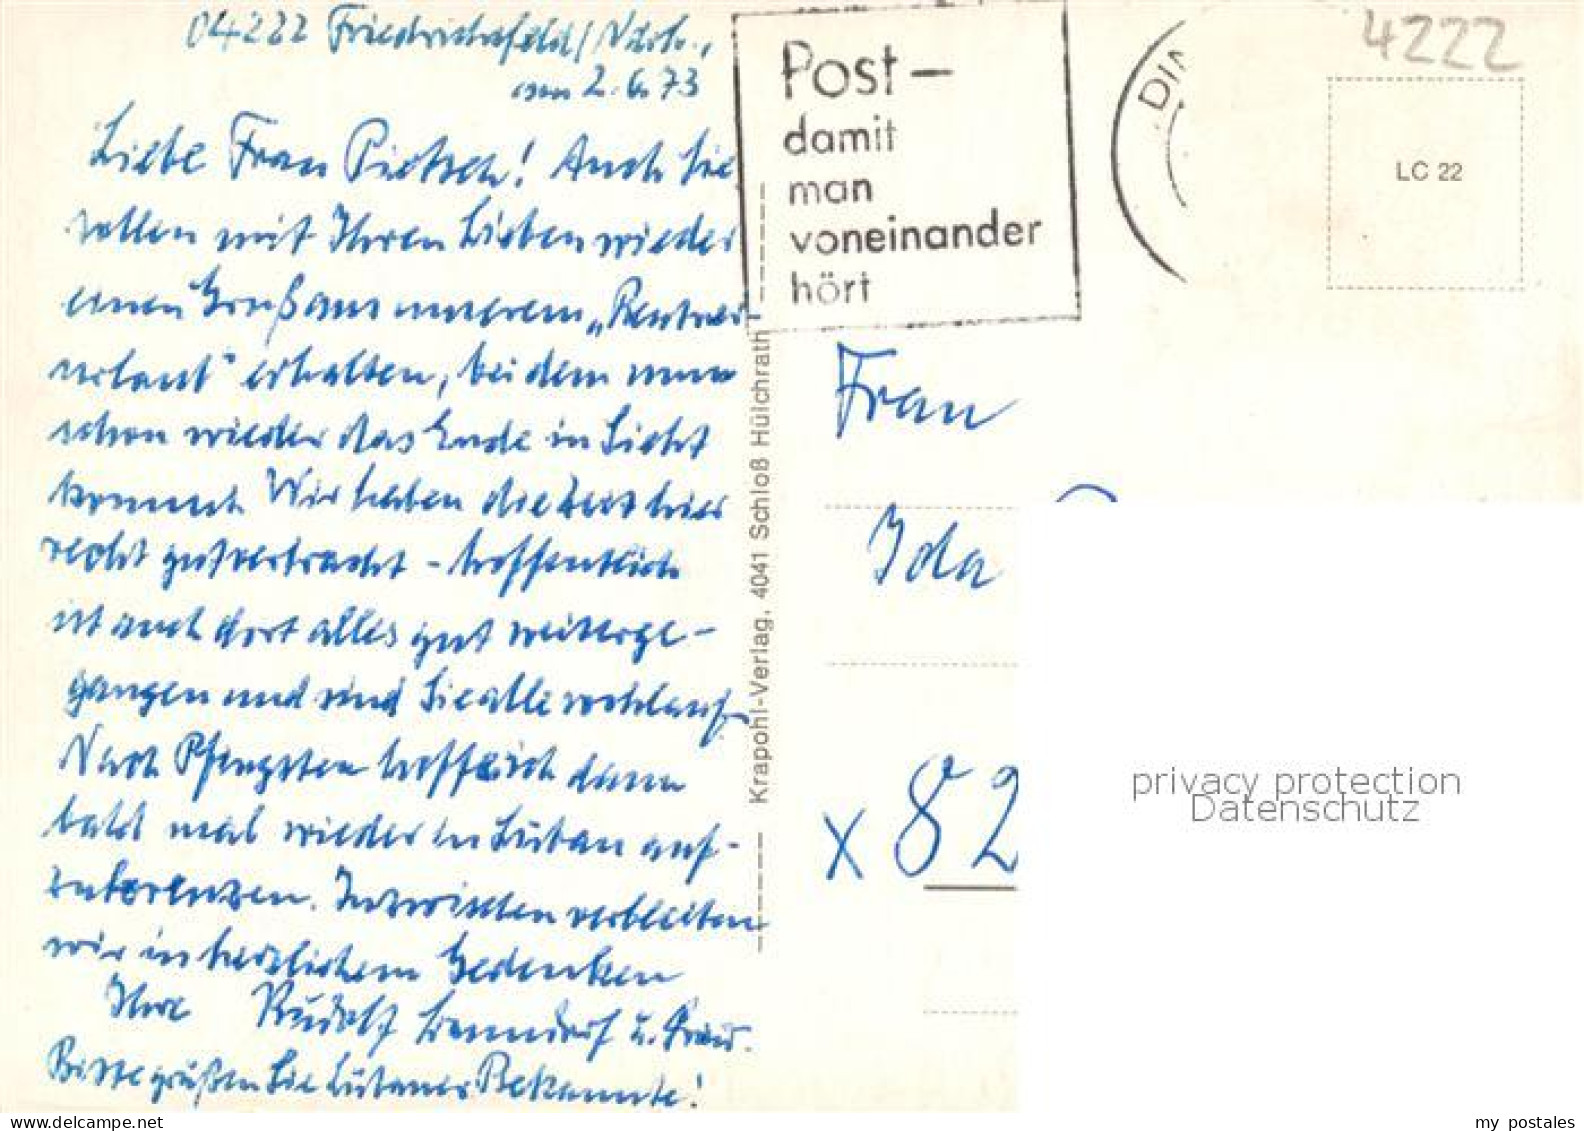 04222 Friedrichsfeld/Ndrh.,
am 2.6.73
Liebe Frau Pietsch! Auch Sie
sollen mit Ihren Lieben wieder
einen Gruß aus unserem „Rentner-
urlaub" erhalten, bei dem nun
schon wieder das Ende in Sicht
kommt. Wir haben die Zeit hier
recht gut verbracht - hoffentlich
ist auch dort alles gut weiterge-
gangen und sind Sie alle wohlauf.
Nach Pfingsten hoffe ich dann
bald mal wieder in Lübau auf-
zukreuzen. Inzwischen verbleiben
wir in herzlichem Gedenken
Ihre Rudolf u. Frau.
Bitte grüßen Sie Bekannte!
Krapohl-Verlag, 4041 Schloß Hülchrath
Post-
damit
man
voneinander
hört
DIN
4222
LC 22
Frau
Ida
x 82
privacy protection
Datenschutz
my postales
delcampe.net